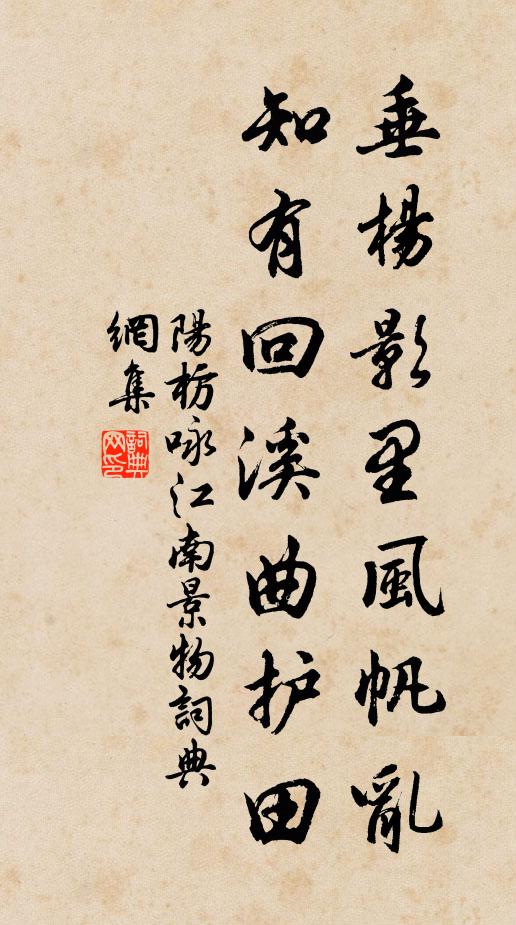 垂楊影里風帆亂
知有回溪曲护田
陽枋咏江南景物詞典
網集
詞典網印